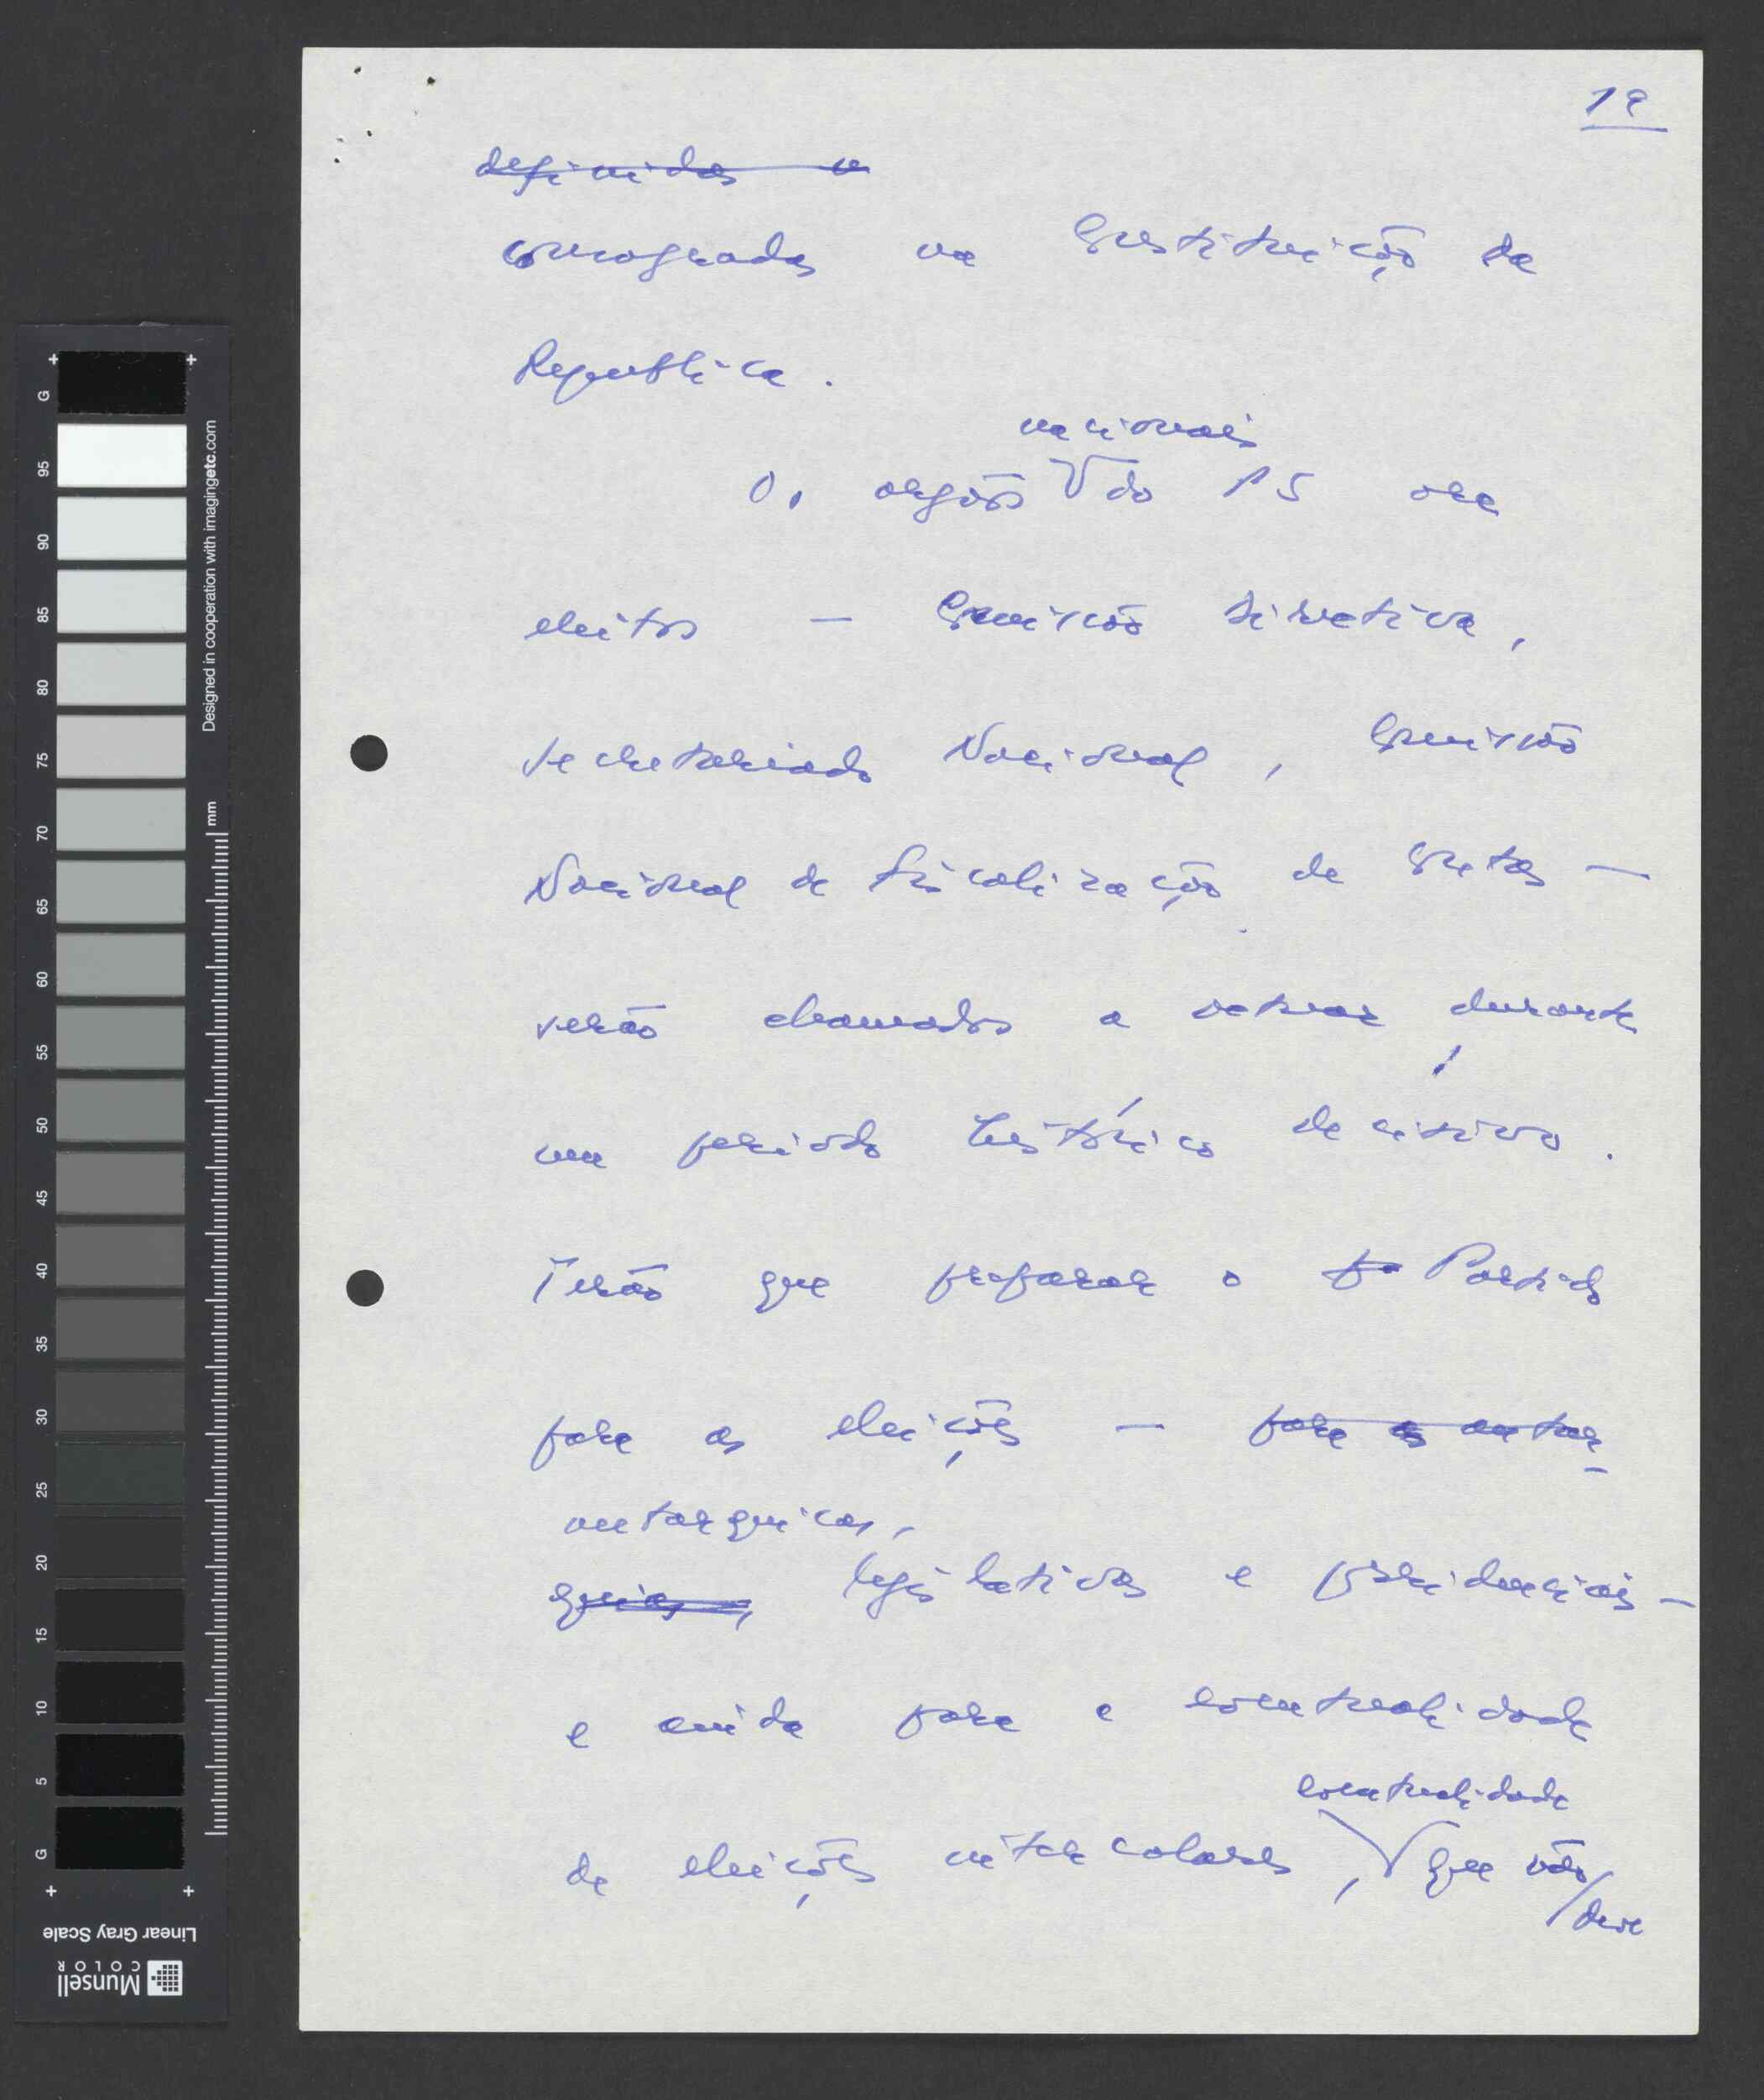 19
definidas n
consagradas na Constituição da
Republica.
nacionais
Os orgãos do PS ora
eleitos — Comissão Directiva,
Secretariado Nacional, Comissão
Nacional de Fiscalização de Contas —
serão chamados a actuar durante
um período histórico decisivo.
Terão que preparar o Partido
para as eleições — para as autar
autarquicas,
quias, legislativas e presidenciais —
e ainda para a eventualidade
eventualidade
de eleições intercalares, que não
/deve
G
95
90
85
80
75
70
65
60
55
50
45
40
35
30
25
20
15
10
5
G
mm
Designed in cooperation with imagingetc.com
Linear Gray Scale
Munsell
COLOR